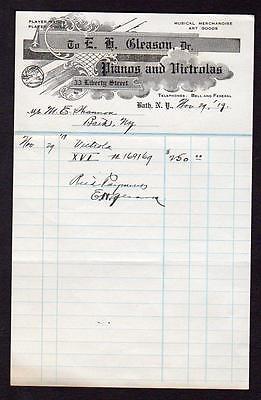 PLAYER PIANOS
MUSICAL MERCHANDISE
ART GOODS
To E. H. Gleason, Dr.
Pianos and Victrolas
33 Liberty Street
TELEPHONES: BELL AND FEDERAL
Bath, N. Y. Nov 29, '19.
Mr M. E. Shannon
Bath, Ny
Nov 29 '19 Victrola
XVI # 169169 $250 00
Rec'd Payment
E H Gleason